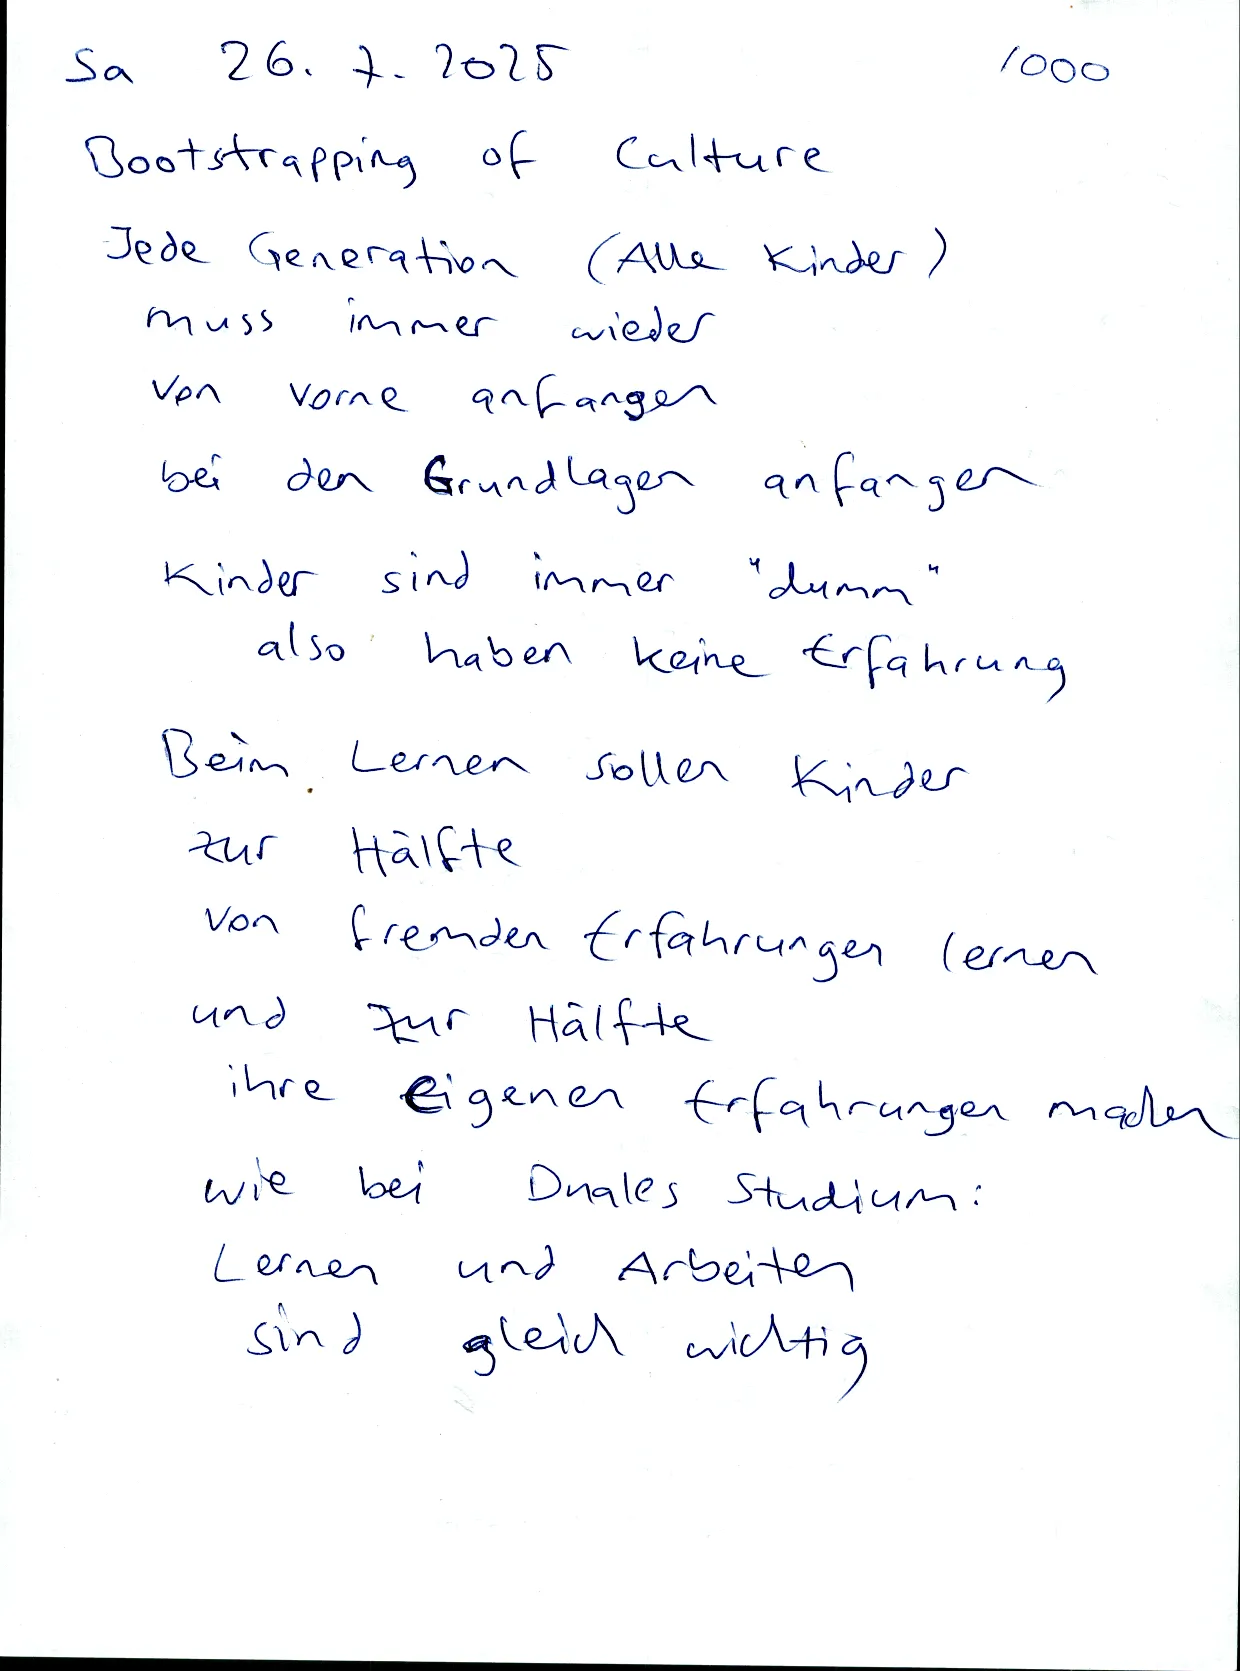 Sa 26. 7. 2025 1000
Bootstrapping of Culture
Jede Generation (Alle Kinder)
muss immer wieder
von vorne anfangen
bei den Grundlagen anfangen
Kinder sind immer "dumm"
also haben keine Erfahrung
Beim Lernen sollen Kinder
zur Hälfte
von fremden Erfahrungen lernen
und zur Hälfte
ihre eigenen Erfahrungen machen
wie bei Duales Studium:
Lernen und Arbeiten
sind gleich wichtig